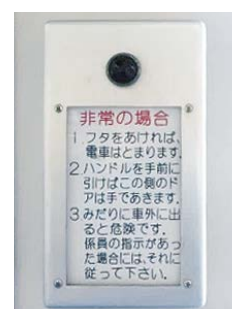 非常の場合
1 フタをあければ、
電車はとまります.
2 ハンドルを手前に
引けばこの側のド
アは手であきます.
3 みだりに車外に出
ると危険です.
係員の指示があっ
た場合には、それに
従って下さい.